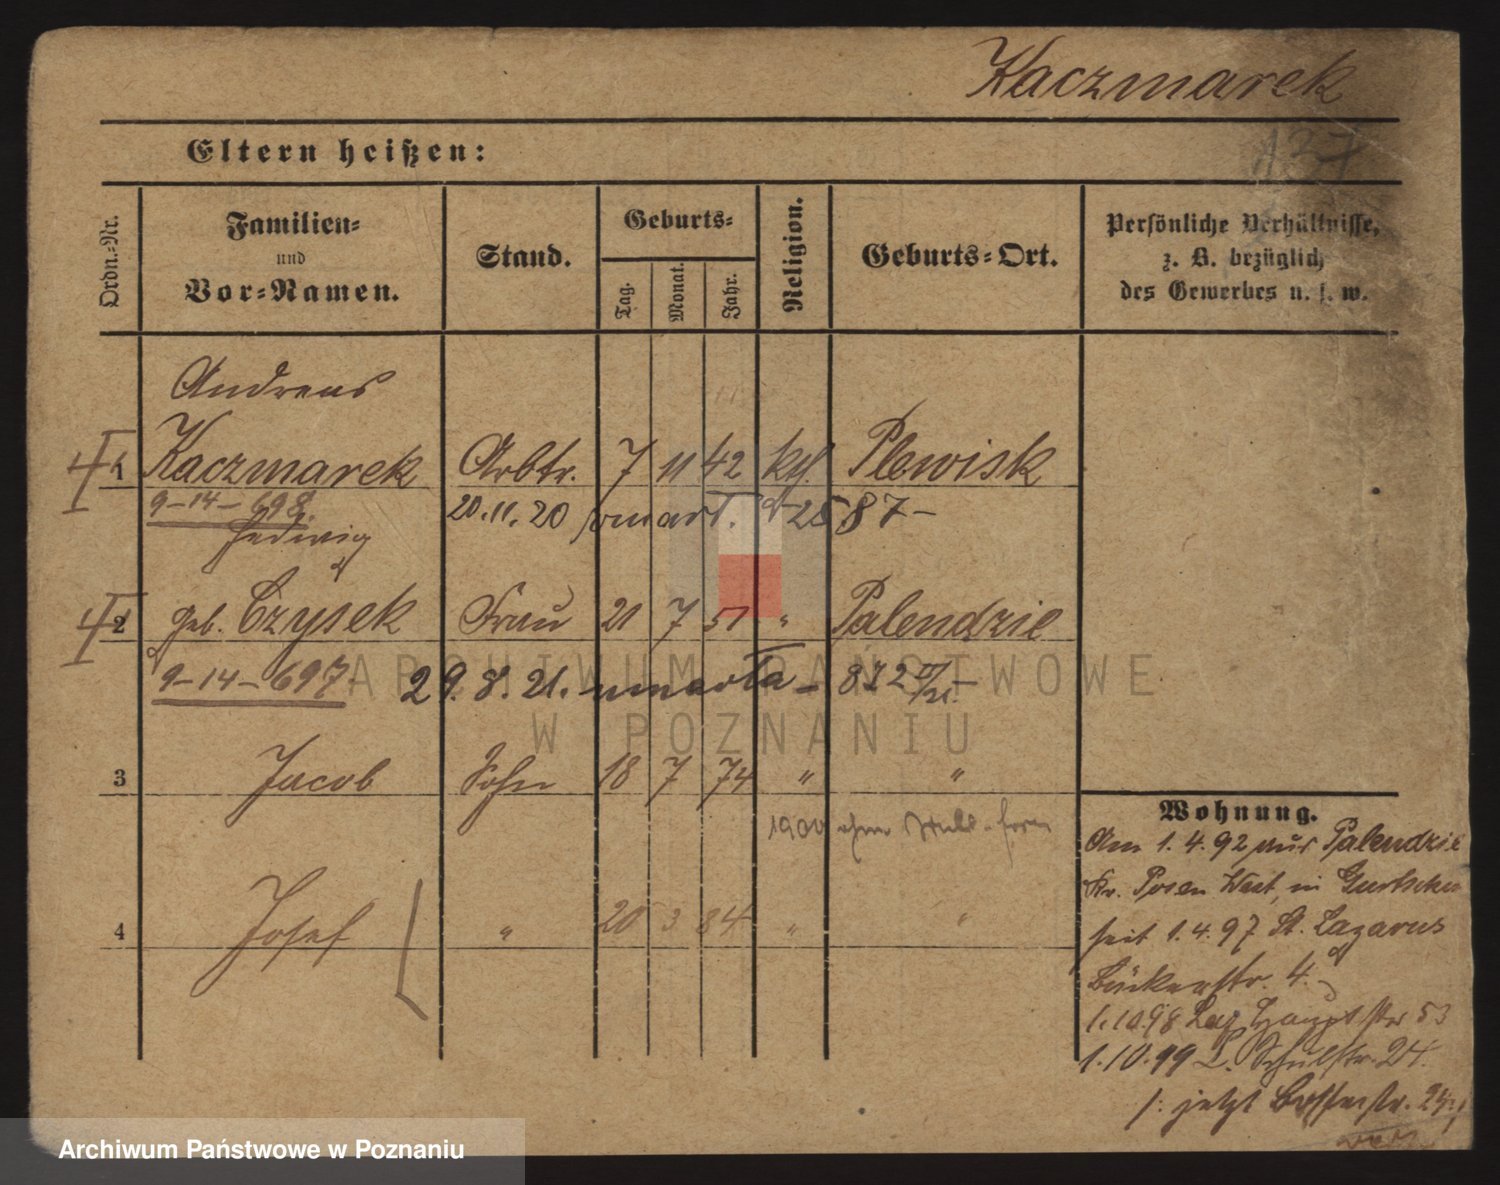 Kaczmarek
137
Eltern heißen:
Ordn.-Nr.
Familien-
und
Vor-Namen.
Stand.
Geburts-
Tag.
Monat.
Jahr.
Religion.
Geburts-Ort.
Persönliche Verhältnisse,
z. B. bezüglich
des Gewerbes u. s. w.
Andreas
1 Kaczmarek Arbtr. 7 11 42 kth. Plewisk
9-14-698. 20.11.20 zmarł. 2587-
Hedwig
2 geb. Czysek Frau 21 7 51 " Palendzie
9-14-697. 29.8.21. umarła - 872
3 Jacob Sohn 18 7 74 " "
1900 ohne
4 Josef " 20 3 84 " "
Wohnung.
Am 1.4.92 aus Palendzie
Kr. Posen West, in Gurtschin
seit 1.4.97 St. Lazarus
Bäckerstr. 4.
1.10.98 Laz. Hauptstr 53
1.10.99 L. Schulstr. 24.
/: jetzt 24 :/
ARCHIWUM PAŃSTWOWE
W POZNANIU
Archiwum Państwowe w Poznaniu